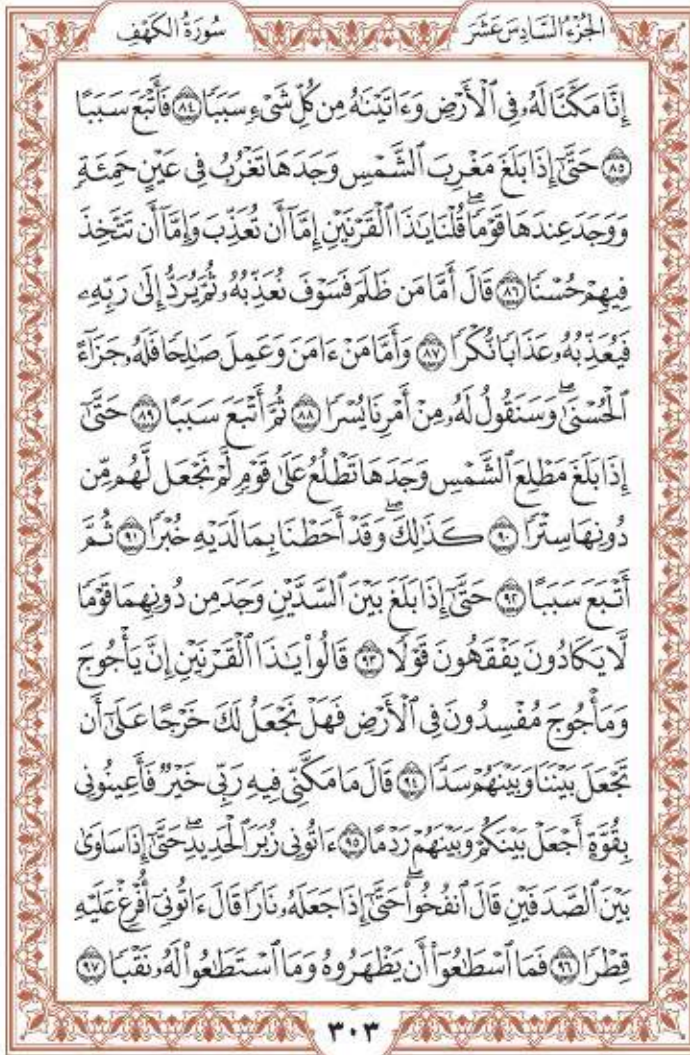 الجُزْءُ السَّادِسَ عَشَرَ
سُورَةُ الكَهْفِ
إِنَّا مَكَّنَّا لَهُۥ فِي ٱلْأَرْضِ وَءَاتَيْنَٰهُ مِن كُلِّ شَيْءٖ سَبَبٗا ٨٤ فَأَتْبَعَ سَبَبًا
٨٥ حَتَّىٰٓ إِذَا بَلَغَ مَغْرِبَ ٱلشَّمْسِ وَجَدَهَا تَغْرُبُ فِي عَيْنٍ حَمِئَةٖ
وَوَجَدَ عِندَهَا قَوْمٗاۖ قُلْنَا يَٰذَا ٱلْقَرْنَيْنِ إِمَّآ أَن تُعَذِّبَ وَإِمَّآ أَن تَتَّخِذَ
فِيهِمْ حُسْنٗا ٨٦ قَالَ أَمَّا مَن ظَلَمَ فَسَوْفَ نُعَذِّبُهُۥ ثُمَّ يُرَدُّ إِلَىٰ رَبِّهِۦ
فَيُعَذِّبُهُۥ عَذَابٗا نُّكْرٗا ٨٧ وَأَمَّا مَنْ ءَامَنَ وَعَمِلَ صَٰلِحٗا فَلَهُۥ جَزَآءً
ٱلْحُسْنَىٰۖ وَسَنَقُولُ لَهُۥ مِنْ أَمْرِنَا يُسْرٗا ٨٨ ثُمَّ أَتْبَعَ سَبَبًا ٨٩ حَتَّىٰٓ
إِذَا بَلَغَ مَطْلِعَ ٱلشَّمْسِ وَجَدَهَا تَطْلُعُ عَلَىٰ قَوْمٖ لَّمْ نَجْعَل لَّهُم مِّن
دُونِهَا سِتْرٗا ٩٠ كَذَٰلِكَۖ وَقَدْ أَحَطْنَا بِمَا لَدَيْهِ خُبْرٗا ٩١ ثُمَّ
أَتْبَعَ سَبَبًا ٩٢ حَتَّىٰٓ إِذَا بَلَغَ بَيْنَ ٱلسَّدَّيْنِ وَجَدَ مِن دُونِهِمَا قَوْمٗا
لَّا يَكَادُونَ يَفْقَهُونَ قَوْلٗا ٩٣ قَالُوا۟ يَٰذَا ٱلْقَرْنَيْنِ إِنَّ يَأْجُوجَ
وَمَأْجُوجَ مُفْسِدُونَ فِي ٱلْأَرْضِ فَهَلْ نَجْعَلُ لَكَ خَرْجًا عَلَىٰٓ أَن
تَجْعَلَ بَيْنَنَا وَبَيْنَهُمْ سَدّٗا ٩٤ قَالَ مَا مَكَّنِّي فِيهِ رَبِّي خَيْرٞ فَأَعِينُونِي
بِقُوَّةٍ أَجْعَلْ بَيْنَكُمْ وَبَيْنَهُمْ رَدْمًا ٩٥ ءَاتُونِي زُبَرَ ٱلْحَدِيدِۖ حَتَّىٰٓ إِذَا سَاوَىٰ
بَيْنَ ٱلصَّدَفَيْنِ قَالَ ٱنفُخُوا۟ۖ حَتَّىٰٓ إِذَا جَعَلَهُۥ نَارٗا قَالَ ءَاتُونِيٓ أُفْرِغْ عَلَيْهِ
قِطْرٗا ٩٦ فَمَا ٱسْطَٰعُوٓا۟ أَن يَظْهَرُوهُ وَمَا ٱسْتَطَٰعُوا۟ لَهُۥ نَقْبٗا ٩٧
٣٠٣